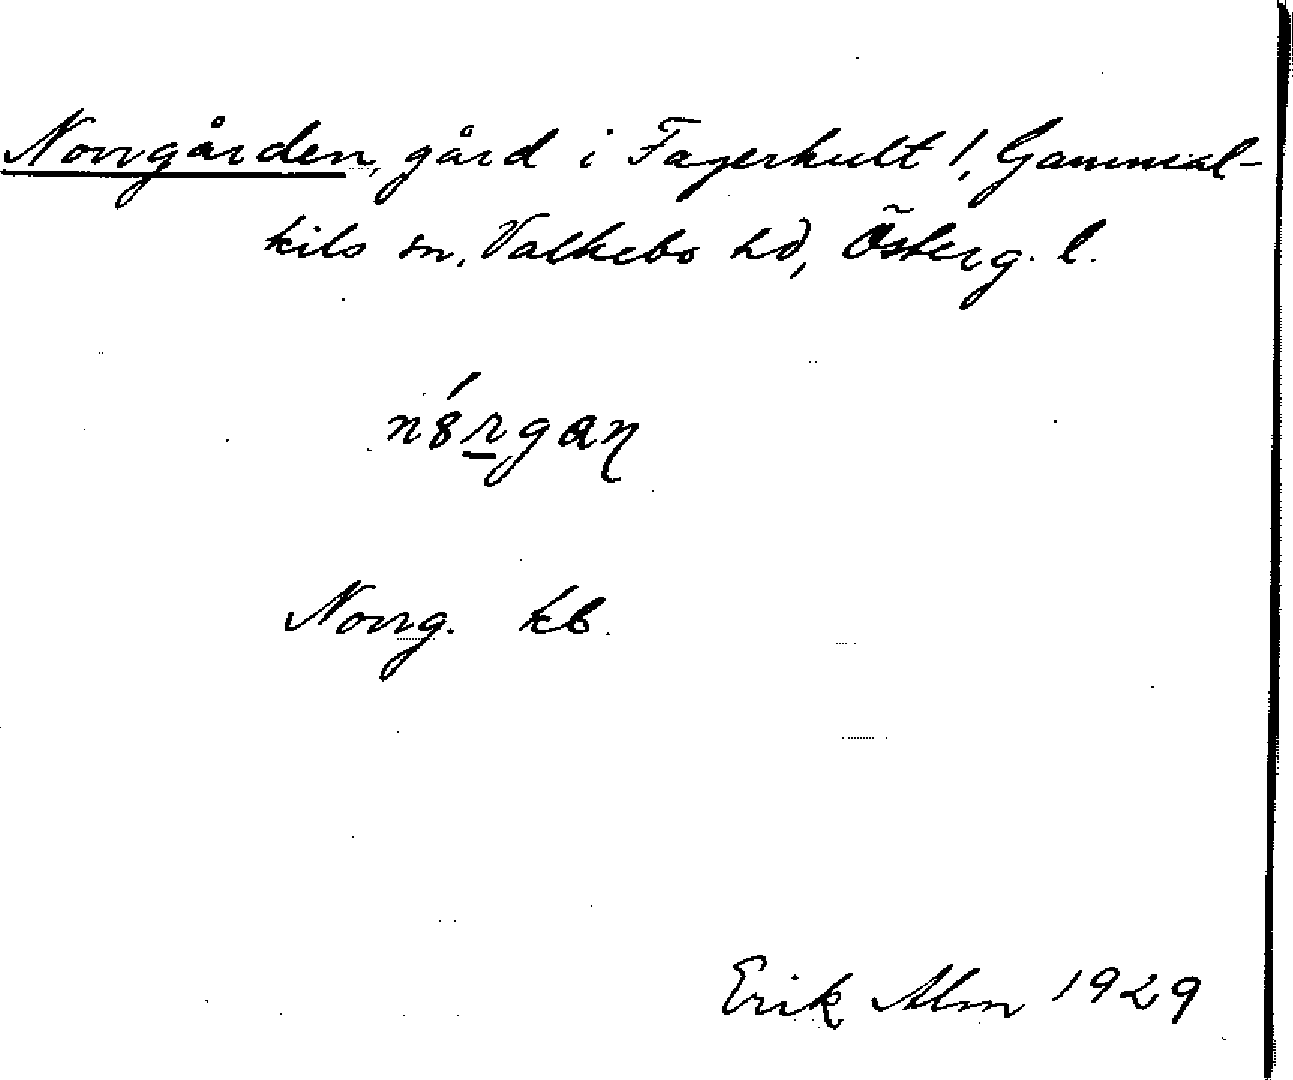 Norrgården, gård i Fagerhult!, Gammal-
kils sn, Valkebo hd, Österg. l.
Norrg. kb.
Erik Alm 1929